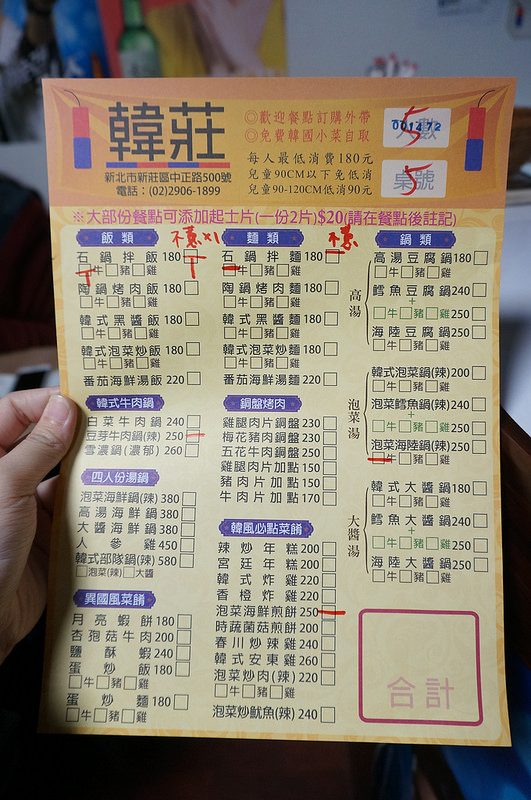 韓莊
新北市新莊區中正路500號
電話：(02)2906-1899
◎歡迎餐點訂購外帶
◎免費韓國小菜自取
每人最低消費180元
兒童90CM以下免低消
兒童90-120CM低消90元
人數 5
001472
桌號 5
※大部份餐點可添加起士片(一份2片)$20(請在餐點後註記)
飯類
不蔥x1
石鍋拌飯180□
□牛□豬□雞
陶鍋烤肉飯180□
□牛□豬□雞
韓式黑醬飯180□
□牛□豬□雞
韓式泡菜炒飯180□
□牛□豬□雞
番茄海鮮湯飯220□
韓式牛肉鍋
白菜牛肉鍋240□
豆芽牛肉鍋(辣)250□
雪濃鍋(濃郁)260□
四人份湯鍋
泡菜海鮮鍋(辣)380□
高湯海鮮鍋380□
大醬海鮮鍋380□
人參雞450□
韓式部隊鍋(辣)580□
□泡菜(辣)□大醬
異國風菜餚
月亮蝦餅180□
杏孢菇牛肉200□
鹽酥蝦240□
蛋炒飯180□
□牛□豬□雞
蛋炒麵180□
□牛□豬□雞
麵類
不蔥
石鍋拌麵180□
□牛□豬□雞
陶鍋烤肉麵180□
□牛□豬□雞
韓式黑醬麵180□
□牛□豬□雞
韓式泡菜炒麵180□
□牛□豬□雞
番茄海鮮湯麵220□
銅盤烤肉
雞腿肉片銅盤230□
梅花豬肉銅盤230□
五花牛肉銅盤250□
雞腿肉片加點150□
豬肉片加點150□
牛肉片加點170□
韓風必點菜餚
辣炒年糕200□
宮廷年糕200□
韓式炸雞220□
香橙炸雞220□
泡菜海鮮煎餅250□
時蔬菌菇煎餅200□
春川炒辣雞240□
韓式安東雞260□
泡菜炒肉(辣)220□
□牛□豬□雞
泡菜炒魷魚(辣)240□
鍋類
高湯
高湯豆腐鍋180□
□牛□豬□雞
鱈魚豆腐鍋240□
+
□牛□豬□雞250□
海陸豆腐鍋250□
□牛□豬□雞
泡菜湯
韓式泡菜鍋(辣)200□
□牛□豬□雞
泡菜鱈魚鍋(辣)240□
+
□牛□豬□雞250□
泡菜海陸鍋(辣)250□
□牛□豬□雞
大醬湯
韓式大醬鍋180□
□牛□豬□雞
鱈魚大醬鍋240□
+
□牛□豬□雞250□
海陸大醬鍋250□
□牛□豬□雞
合計